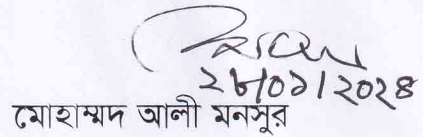 ২৮/০১/২০২৪
মোহাম্মদ আলী মনসুর